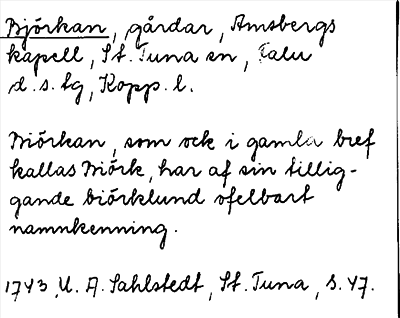 Björkan, gårdar, Amsbergs
kapell, St. Tuna sn, Falu
d.s. tg, Kopp. l.
Biörkan, som ock i gamla bref
kallas Biörk, har af sin tillig-
gande biörklund ofelbart
namnkenning.
1743, U. A. Sahlstedt, St. Tuna, s. 47.